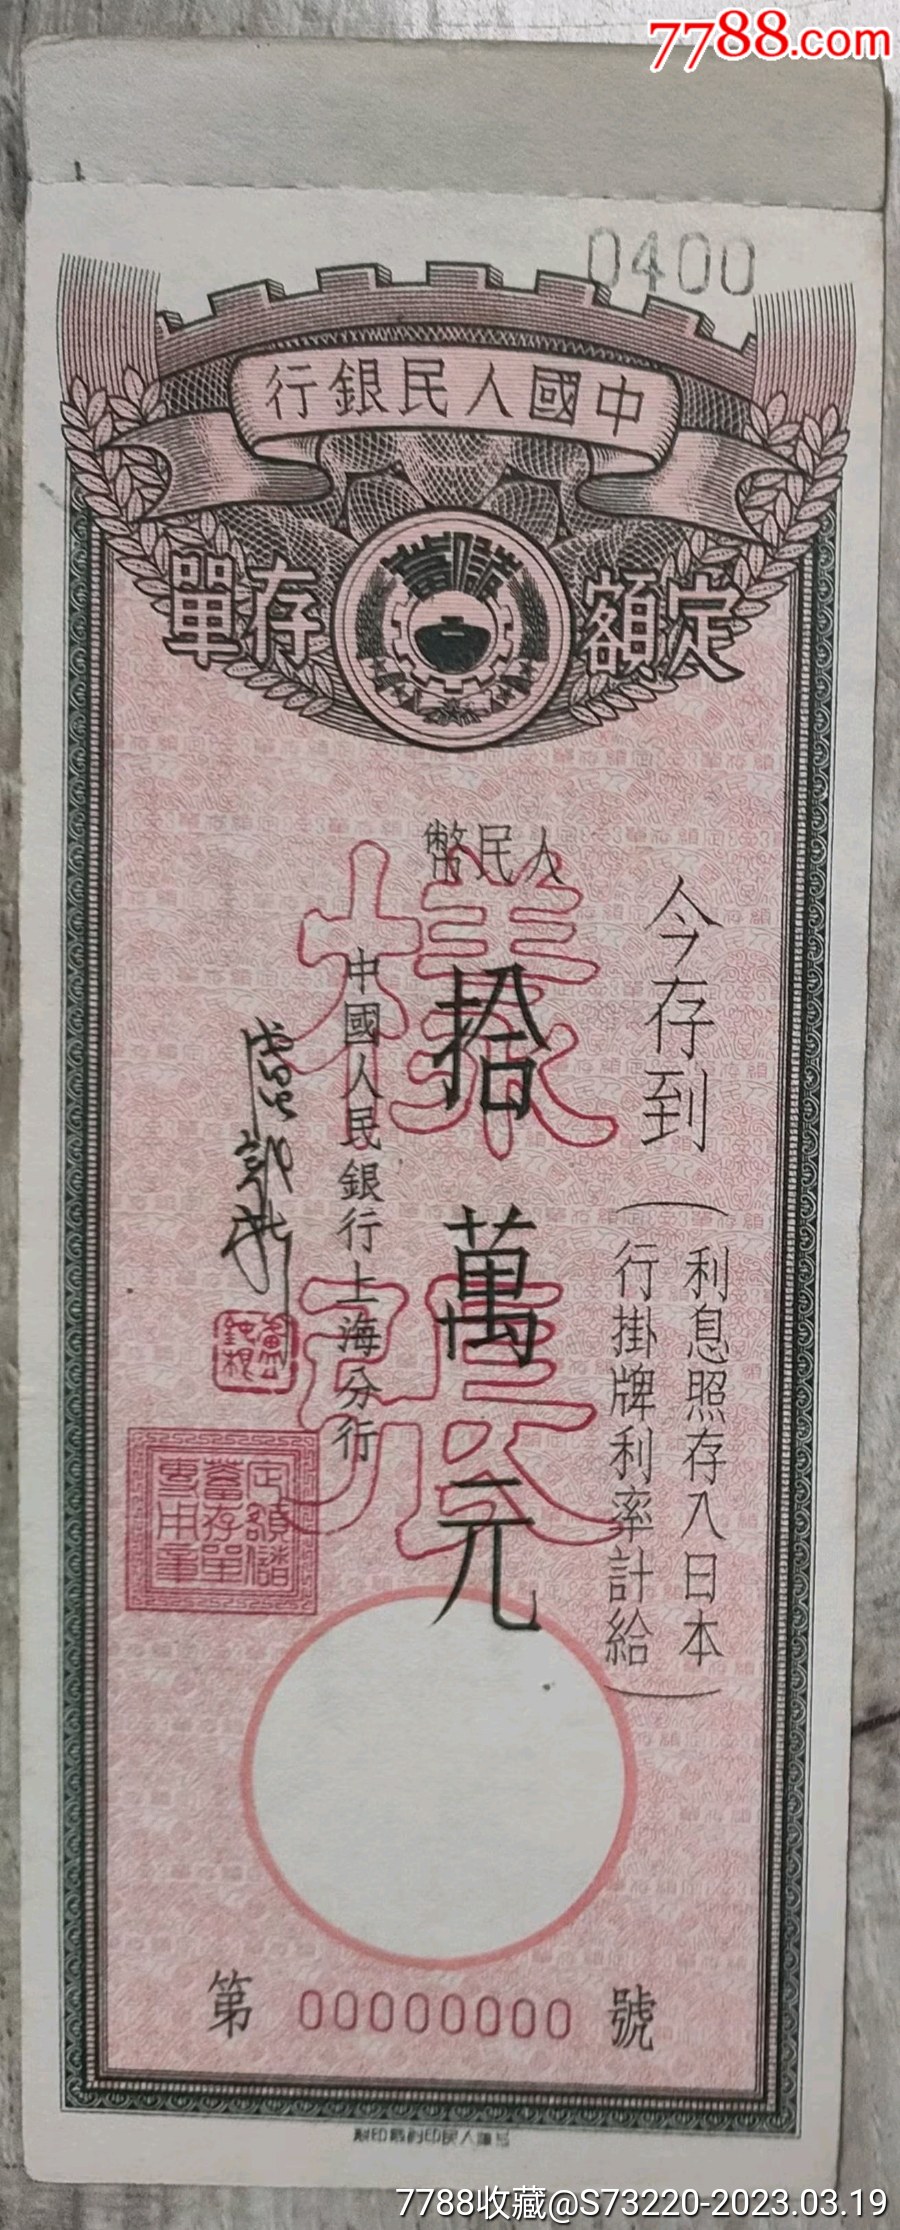 7788.com
0400
中國人民銀行
定額存單
儲蓄
人民幣
樣張
今存到
(利息照存入日本
行掛牌利率計給)
拾萬元
中國人民銀行上海分行
定額儲
蓄存單
專用章
第 00000000 號
7788收藏@S73220-2023.03.19